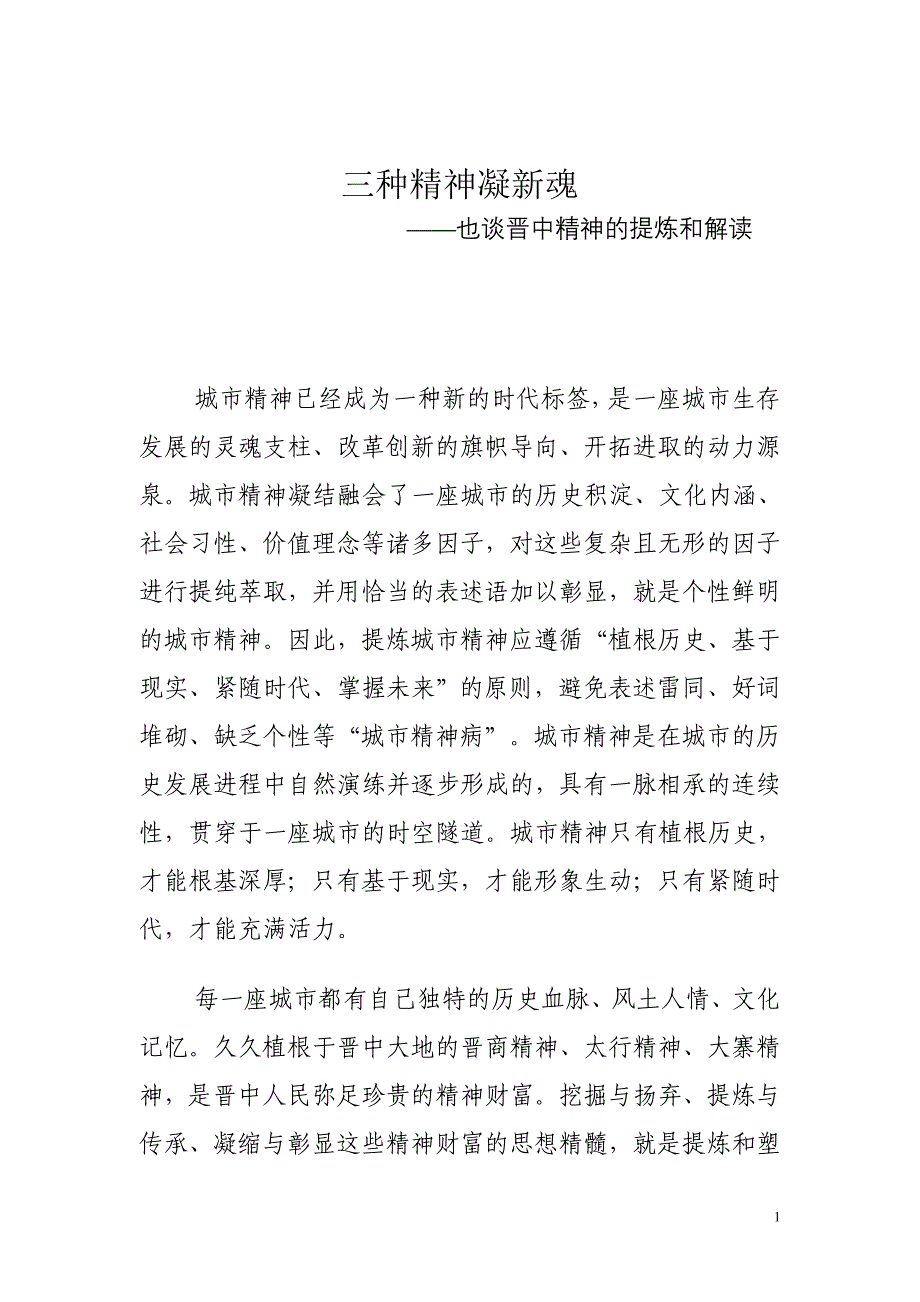 三种精神凝新魂
——也谈晋中精神的提炼和解读
城市精神已经成为一种新的时代标签，是一座城市生存
发展的灵魂支柱、改革创新的旗帜导向、开拓进取的动力源
泉。城市精神凝结融会了一座城市的历史积淀、文化内涵、
社会习性、价值理念等诸多因子，对这些复杂且无形的因子
进行提纯萃取，并用恰当的表述语加以彰显，就是个性鲜明
的城市精神。因此，提炼城市精神应遵循“植根历史、基于
现实、紧随时代、掌握未来”的原则，避免表述雷同、好词
堆砌、缺乏个性等“城市精神病”。城市精神是在城市的历
史发展进程中自然演练并逐步形成的，具有一脉相承的连续
性，贯穿于一座城市的时空隧道。城市精神只有植根历史，
才能根基深厚；只有基于现实，才能形象生动；只有紧随时
代，才能充满活力。
每一座城市都有自己独特的历史血脉、风土人情、文化
记忆。久久植根于晋中大地的晋商精神、太行精神、大寨精
神，是晋中人民弥足珍贵的精神财富。挖掘与扬弃、提炼与
传承、凝缩与彰显这些精神财富的思想精髓，就是提炼和塑
1